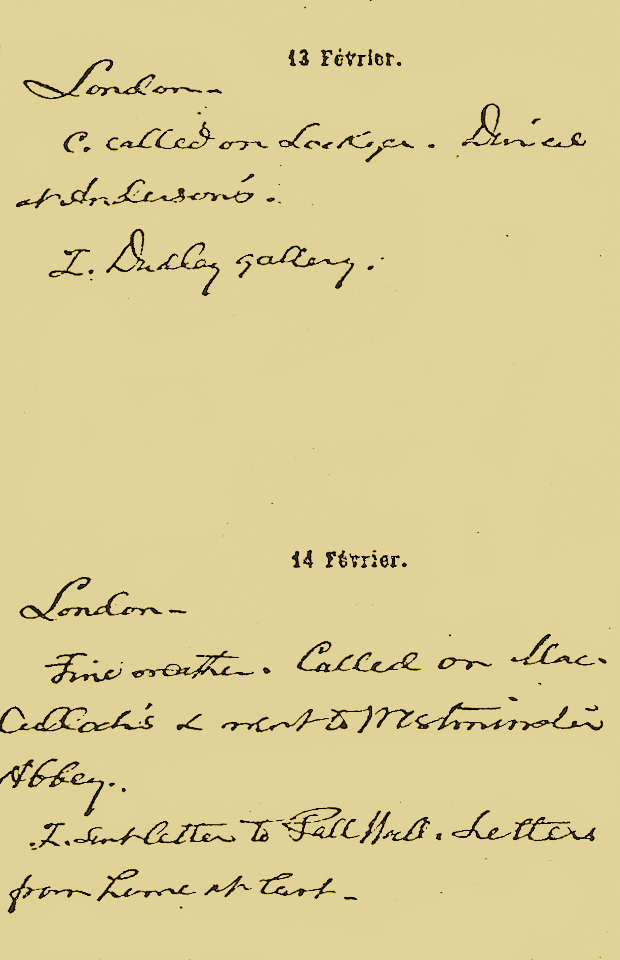 13 Février.
London—
C. called on Lockyer. Dined
at Anderson's.
I. Dudley gallery.
14 Février.
London—
Fine weather. Called on Mac-
Culloch's & went to Westminster
Abbey.
I. sent letter to Pall Mall. Letters
from home at last—